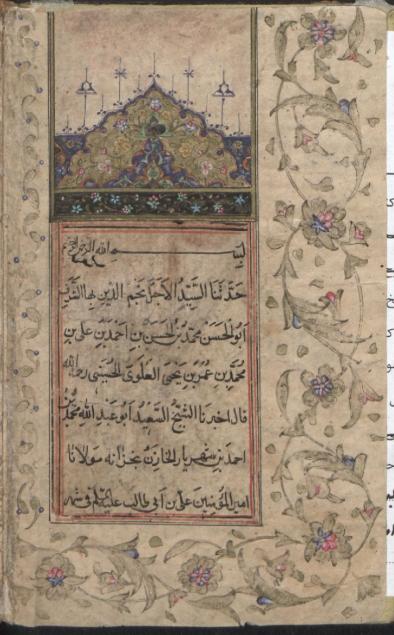 بسم الله الرحمن الرحيم
حَدَّثَنَا السَّيِّدُ الْأَجَلُّ نَجْمُ الدّينِ بهاء الشَّرَفِ
اَبُو الْحَسَنِ مُحَمَّدُ بْنُ الْحَسَنِ بْنِ اَحْمَدَ بْنِ عَلِيِّ بْنِ
مُحَمَّدِ بْنِ عُمَرَ بْنِ يَحْيَى الْعَلَوِيُّ الْحُسَيْنِيُّ رحمه الله
قال اخبرنا الشَّيْخُ السَّعيدُ اَبُو عَبْدِ اللهِ مُحَمَّدُ بْنُ
احمد بن شهريار الخازن بخزانه مولانا
امير المؤمنين على بن ابى طالب عليه السلم فى شهر